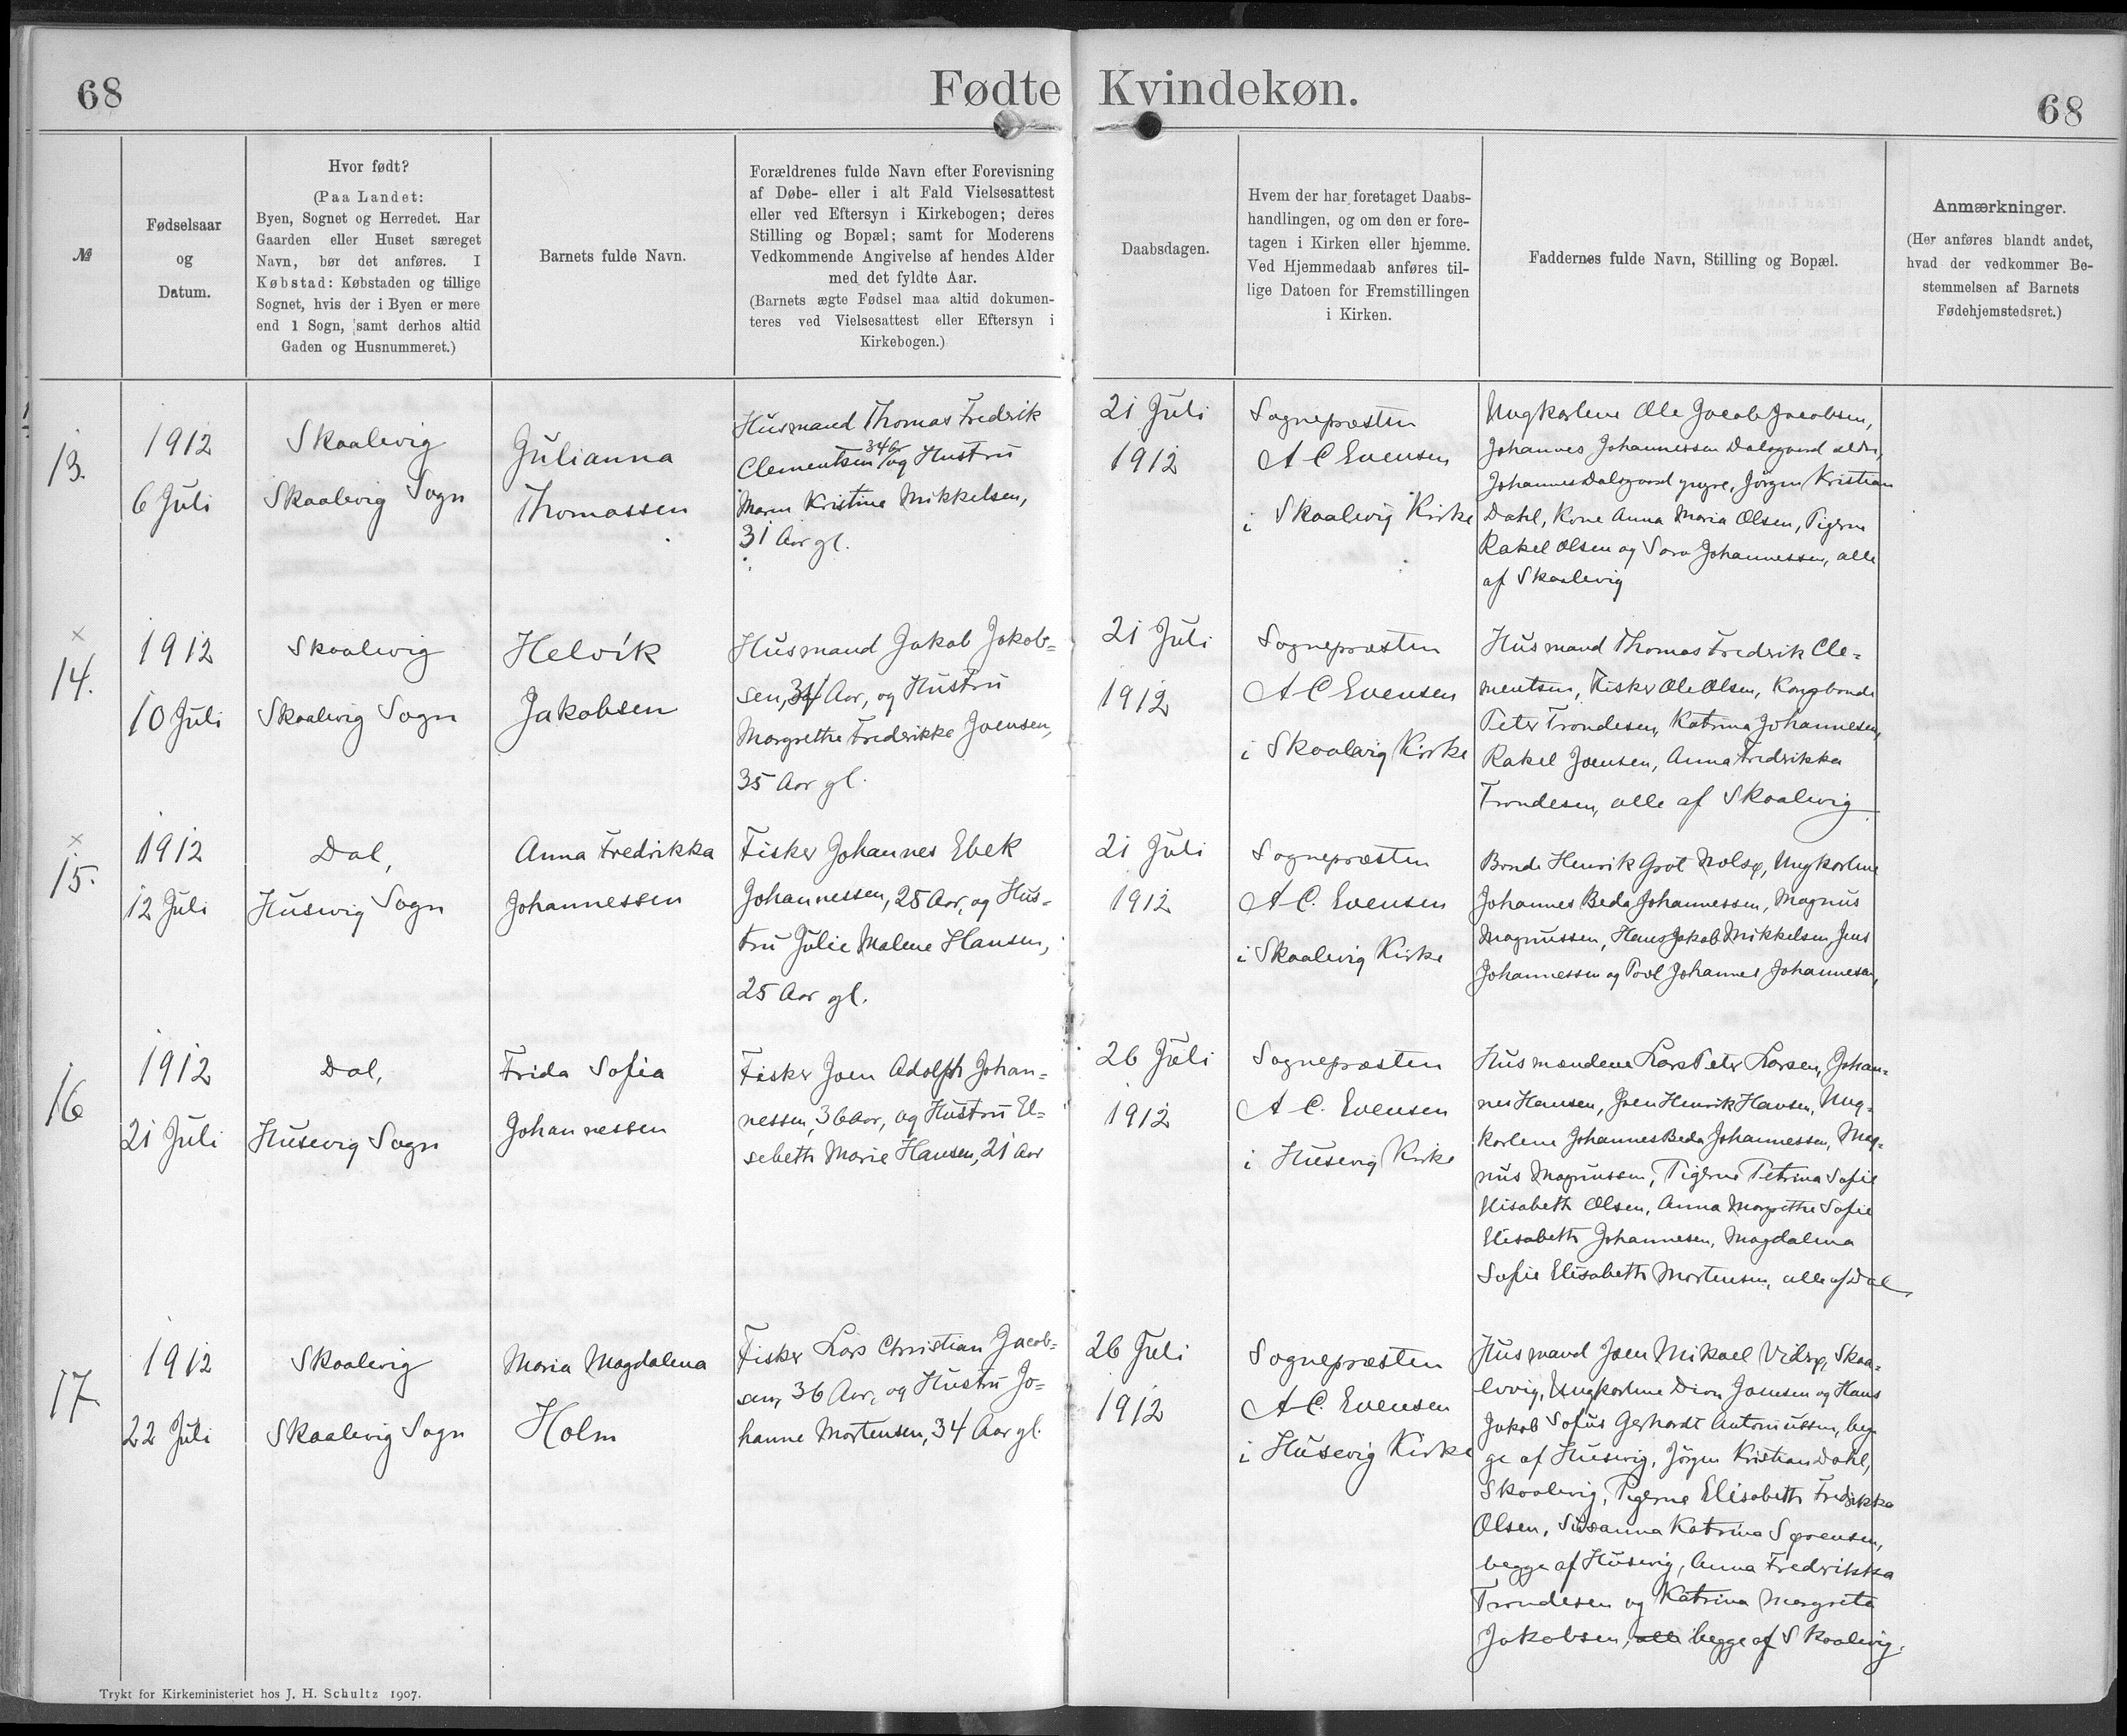 68
Fødte Kvindekøn.
68
№
Fødselsaar
og
Datum.
Hvor født?
(Paa Landet:
Byen, Sognet og Herredet. Har
Gaarden eller Huset særeget
Navn, bør det anføres. I
Købstad: Købstaden og tillige
Sognet, hvis der i Byen er mere
end 1 Sogn, samt derhos altid
Gaden og Husnummeret.)
Barnets fulde Navn.
Forældrenes fulde Navn efter Forevisning
af Døbe- eller i alt Fald Vielsesattest
eller ved Eftersyn i Kirkebogen; deres
Stilling og Bopæl; samt for Moderens
Vedkommende Angivelse af hendes Alder
med det fyldte Aar.
(Barnets ægte Fødsel maa altid dokumen-
teres ved Vielsesattest eller Eftersyn i
Kirkebogen.)
Daabsdagen.
Hvem der har foretaget Daabs-
handlingen, og om den er fore-
tagen i Kirken eller hjemme.
Ved Hjemmedaab anføres til-
lige Datoen for Fremstillingen
i Kirken.
Faddernes fulde Navn, Stilling og Bopæl.
Anmærkninger.
(Her anføres blandt andet,
hvad der vedkommer Be-
stemmelsen af Barnets
Fødehjemstedsret.)
13.
1912
6 Juli
Skaalevig
Skaalevig Sogn
Gulianna
Thomassen
Husmand Thomas Fredrik
Clementsen 34 og Hustru
Maren Kristine Mikkelsen,
31 Aar gl.
21 Juli
1912
Sognepræsten
A C Evensen
i Skaalevig Kirke
Ungkarlene Ole Jacob Jacobsen,
Johannes Johannessen Dalsgaard ældre,
Johannes Dalsgaard yngre, Jörgen Kristian
Dahl, Kone Anna Maria Olsen, Pigerne
Rakel Olsen og Sara Johannessen, alle
af Skaalevig
×
14.
1912
10 Juli
Skaalevig
Skaalevig Sogn
Helvík
Jakobsen
Husmand Jakob Jakob=
sen, 34 Aar, og Hustru
Margrethe Frederikke Joensen,
35 Aar gl.
21 Juli
1912
Sognepræsten
A C Evensen
i Skaalevig Kirke
Husmand Thomas Fredrik Cle=
mentsen, Fisker Ole Olsen, Kongsbonde
Peter Trondesen, Katrina Johannesen,
Rakel Joensen, Anna Fredrikka
Trondesen, alle af Skaalevig
×
15.
1912
12 Juli
Dal,
Husevig Sogn
Anna Fredrikka
Johannessen
Fisker Johannes Ebek
Johannessen, 25 Aar, og Hus=
tru Julie Malene Hansen,
25 Aar gl.
21 Juli
1912
Sognepræsten
A C. Evensen
i Skaalevig Kirke
Bonde Henrik Grot Nolsø, Ungkarlene
Johannes Beda Johannessen, Magnus
Magnussen, Hans Jakob Mikkelsen, Jens
Johannessen og Poul Johannes Johannesen,
16
1912
21 Juli
Dal,
Husevig Sogn
Frida Sofia
Johannessen
Fisker Joen Adolph Johan=
nessen, 36 Aar, og Hustru El=
sebeth Marie Hansen, 21 Aar
26 Juli
1912
Sognepræsten
A C. Evensen
i Husevig Kirke
Husmændene Lars Peter Larsen, Johan=
nes Hansen, Joen Henrik Hansen, Ung=
karlene Johannes Beda Johannessen, Mag=
nus Magnussen, Pigerne Petrina Sofie
Elisabeth Olsen, Anna Margrethe Sofie
Elisabeth Johannesen, Magdalena
Sofie Elisabeth Mortensen, alle af Dal
17
1912
22 Juli
Skaalevig
Skaalevig Sogn
Maria Magdalena
Holm
Fisker Lars Christian Jacob=
sen, 36 Aar, og Hustru Jo=
hanne Mortensen, 34 Aar gl.
26 Juli
1912
Sognepræsten
A C. Evensen
i Husevig Kirke
Husmand Joen Mikael Viderø, Skaa=
levig, Ungkarlene Joensen og Hans
Jakob Sofus Gerhardt Antoniussen, beg=
ge af Husevig, Jörgen Kristian Dahl,
Skaalevig, Pigerne Elisabeth Fredrikka
Olsen, Susanna Katrina Sørensen,
begge af Husevig, Anna Fredrikka
Trondesen og Katrina Margreta
Jakobsen, alle begge af Skaalevig.
Trykt for Kirkeministeriet hos J. H. Schultz 1907.